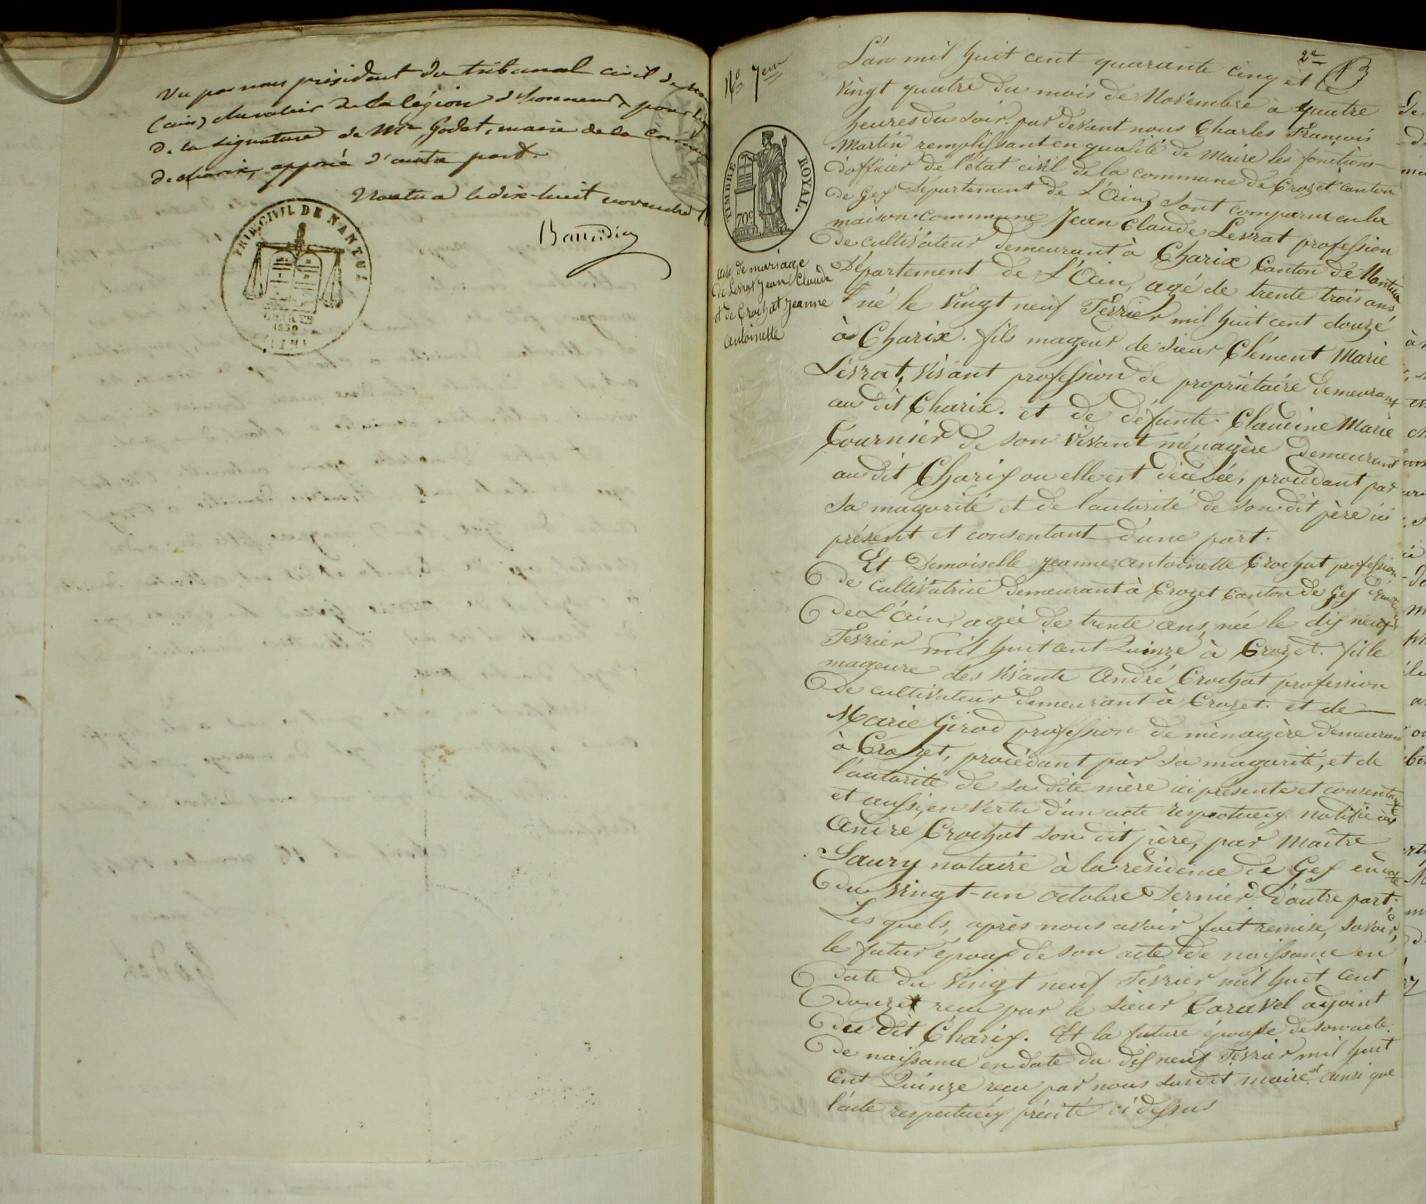 Vu par nous président du tribunal civil de
(ain) chevalier de la légion d'honneur, pour
de la signature de Mr Godet, maire de la
de charix, apposée d'autre part.
Nantua le dix-huit novembre
TRIB. CIVIL DE NANTUA
1830
2e
13
No 7em
TIMBRE ROYAL.
70c
acte de mariage
de Levrat Jean Claude
et de Crochat Jeanne
antoinette
L'an mil huit cent quarante cinq et le
vingt quatre du mois de Novembre à quatre
heures du soir, par devant nous Charles François
Martin remplissant en qualité de Maire les fonctions
d'officier de l'état civil de la commune de Crozet canton
de Gex Département de L'Ain, sont comparu en la
maison commune Jean Claude Levrat profession
de cultivateur demeurant à Charix Canton de Nantua
Département de L'Ain, agé de trente trois ans
né le Vingt neuf Février mil huit cent douze
à Charix. fils mageur de Sieur Clément Marie
Levrat, vivant profession de propriétaire demeurant
au dit Charix. et de défunte Claudine Marie
Tournier de son vivant ménagère demeurant
au dit Charix ou elle est décédée, procédant par
sa magorité et de l'autorité de son dit père ici
présent et consentant d'une part.
Et Demoiselle Jeanne antoinette Crochat profession
de cultivatrice demeurant à Crozet Canton de Gex
de L'ain, agée de trente ans, née le dix neuf
Février mil huit cent Quinze à Crozet. fille
mageure des vivants André Crochat profession
de cultivateur demeurant à Crozet. et de
Marie Girod profession de ménagère demeurant
à Crozet, procédant par sa magorité, et de
l'autorité de sa dite mère ici présente et consentante
et aussi, en vertu d'un acte respectueux notifié au
André Crochat son dit père, par Maître
notaire à la résidence de Gex en date
du Vingt-un octobre Dernier d'autre part.
Les quels, après nous avoir fait remise, savoir,
le futur époux de son acte de naissance en
date du Vingt neuf Février mil huit cent
douze recu par le Sieur adjoint
du dit Charix. Et la future épouse de son acte
de naissance en date du dix neuf Février mil huit
cent Quinze recu par nous susdit maire, ainsi que
l'acte respectueux précité ci dessus